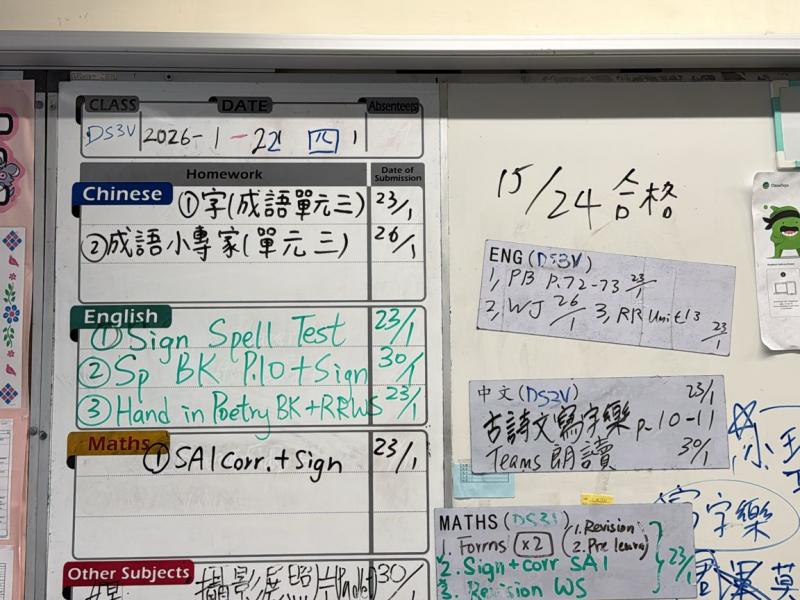 CLASS DATE Absentee(s)
DS3V 2026-1-22 四
Homework Date of Submission
Chinese ①字(成語單元三) 23/1
②成語小專家(單元三) 26/1
English
①Sign Spell Test 23/1
②Sp BK P.10+Sign 30/1
③Hand in Poetry BK+RRWS 23/1
Maths
①SA1 Corr.+Sign 23/1
Other Subjects
攝影展照片 30/1
15/24 合格
ENG (DS3V)
1, PB P.72-73 23/1
2, WJ 26/1 3, RR Unit 13 23/1
中文(DS2V) 23/1
古詩文寫字樂 p.10-11
Teams 朗讀 30/1
字字樂
MATHS (DS3
1. Forms x2 (1. Revision
2. Pre learn)
2. Sign+corr SA1 23/1
3. Revision WS